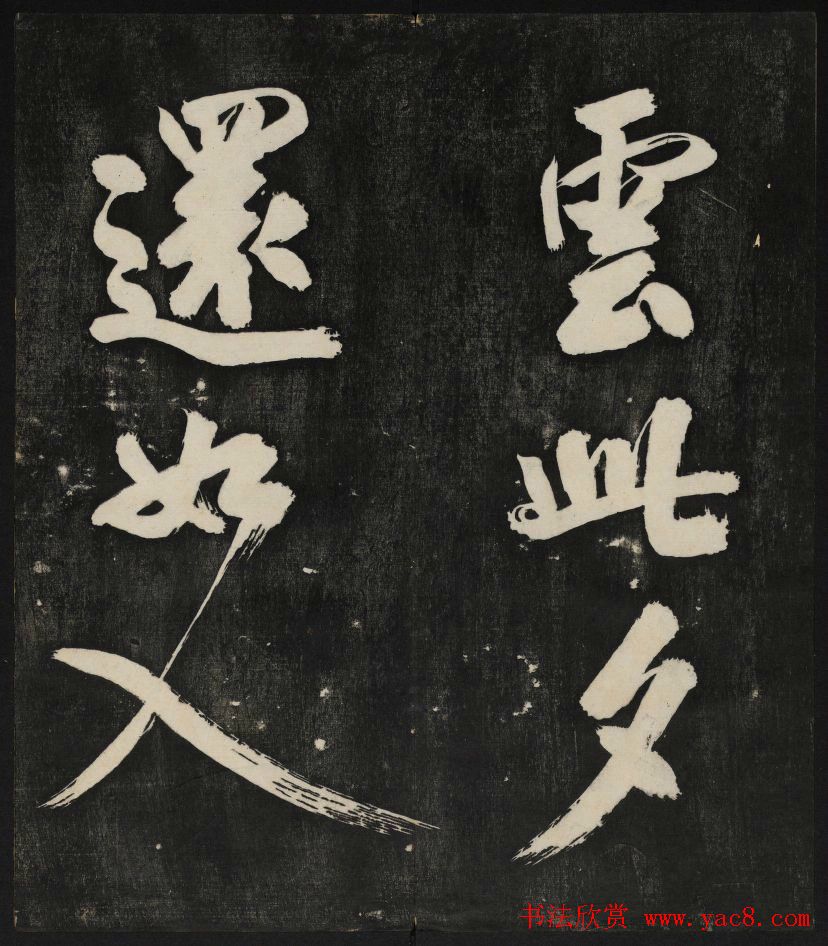 雲此夕
還如入
书法欣赏 www.yac8.com